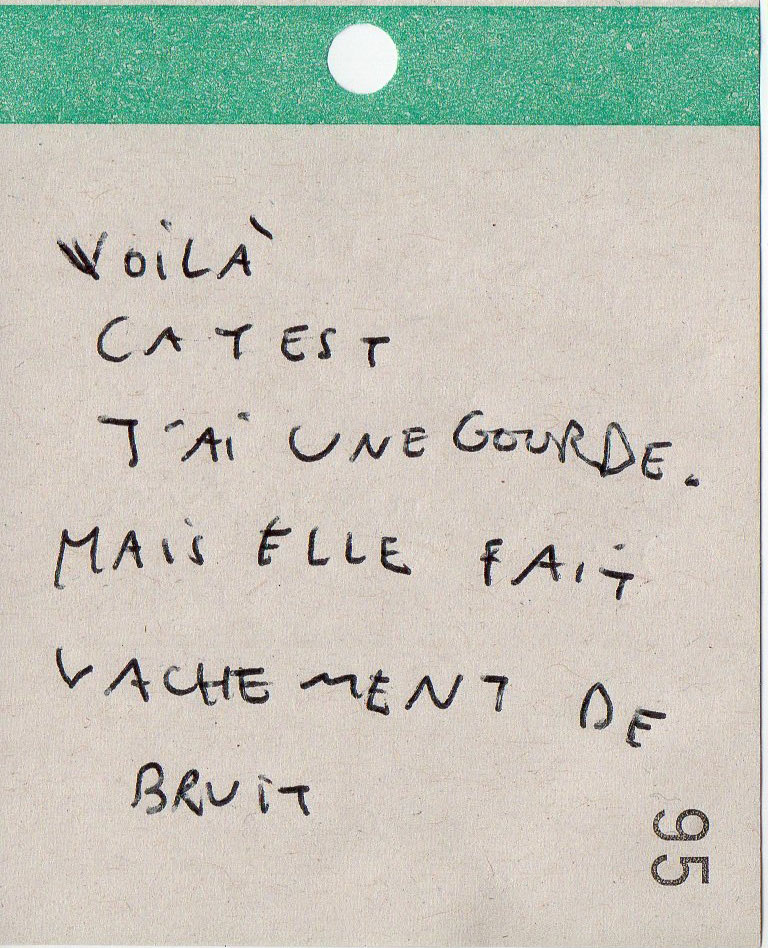 VOiLÀ
CA Y EST
J'Ai UNE GOURDE.
MAiS ELLE FAiT
VACHEMENT DE
BRUiT
95